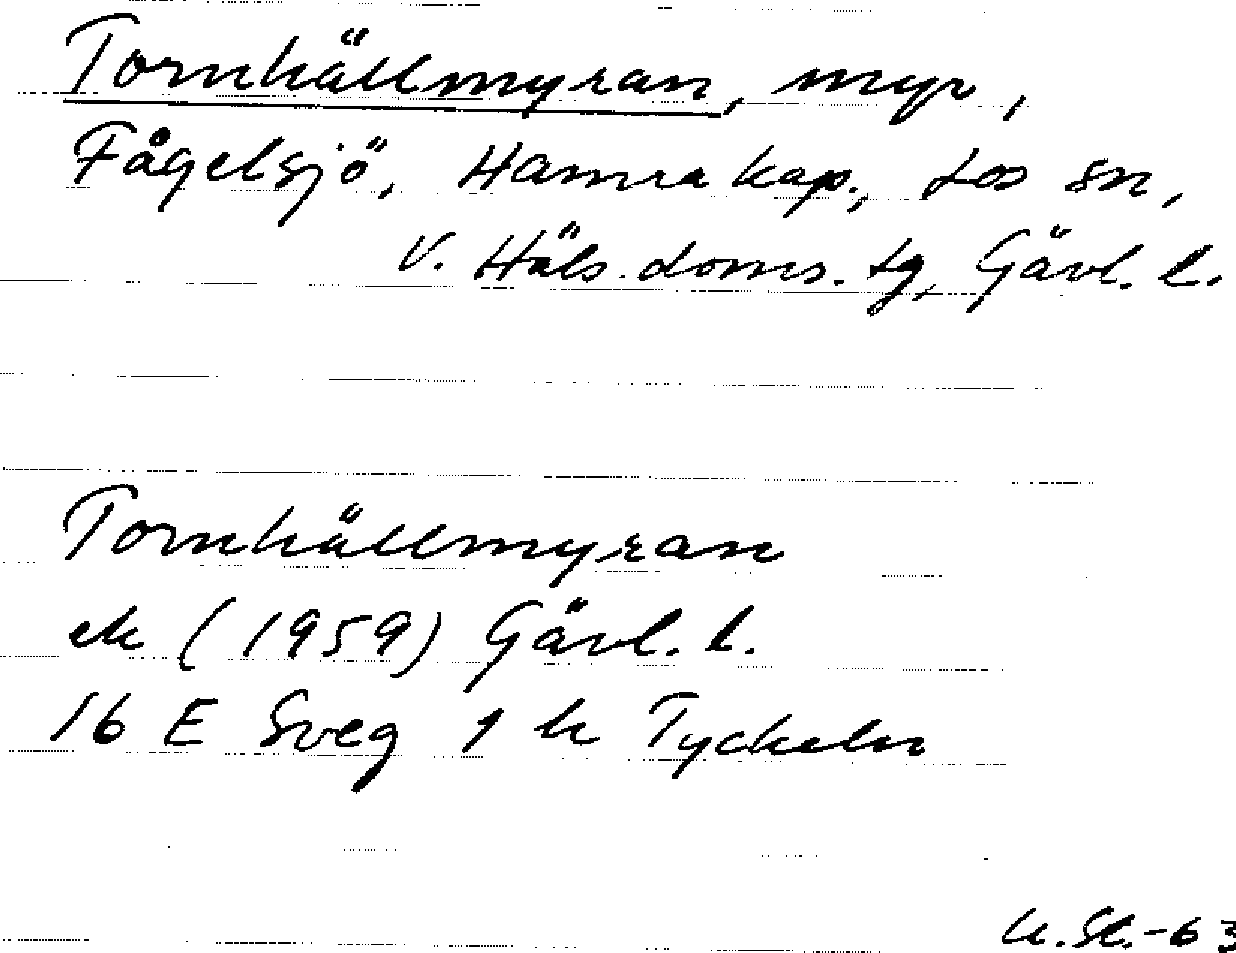 Tornhällmyran, myr,
Fågelsjö, Hamra kap., Los sn,
V. Häls. doms. tg, Gävl. l.
Tornhällmyran
ek (1959) Gävl. l.
16 E Sveg 1 h Tyckeln
-63